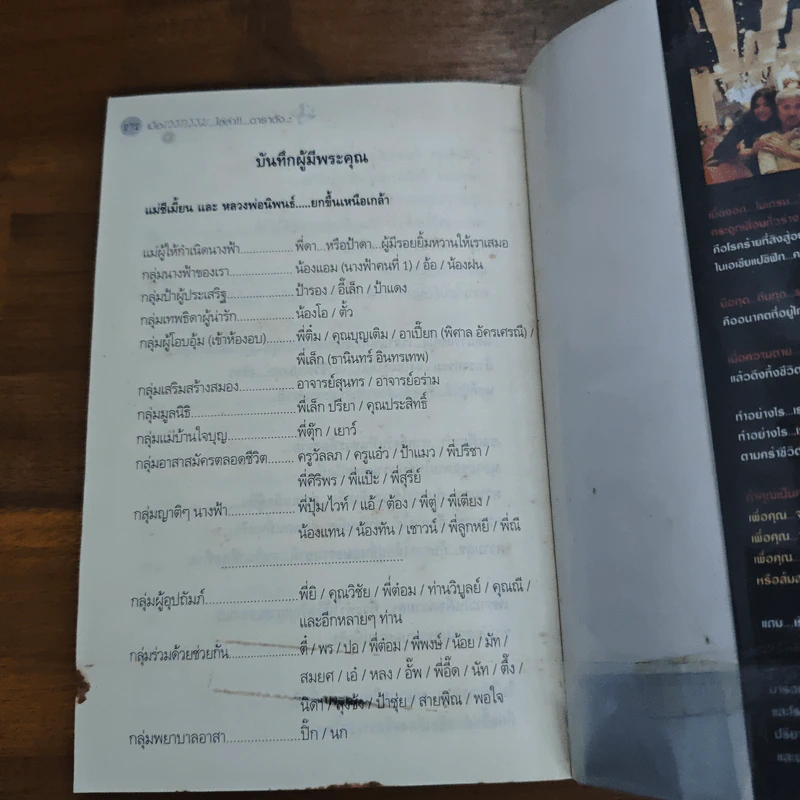 บันทึกผู้มีพระคุณ
แม่ชีเมี้ยน และ หลวงพ่อนิพนธ์.....ยกขึ้นเหนือเกล้า
แม่ผู้ให้กำเนิดนางฟ้า.................. พี่ดา...หรือป้าดา...ผู้มีรอยยิ้มหวานให้เราเสมอ
กลุ่มนางฟ้าของเรา...................... น้องแอม (นางฟ้าคนที่ 1) / อ้อ / น้องฝน
กลุ่มป้าผู้ประเสริฐ....................... ป้ารอง / อี๊เล็ก / ป้าแดง
กลุ่มเทพธิดาผู้น่ารัก..................... น้องโอ / ตั้ว
กลุ่มผู้โอบอุ้ม (เข้าห้องอบ)............พี่ติ๋ม / คุณบุญเติม / อาเปี๊ยก (พิศาล อัครเศรณี) /
พี่เล็ก (ธานินทร์ อินทรเทพ)
กลุ่มเสริมสร้างสมอง....................อาจารย์สุนทร / อาจารย์อร่าม
กลุ่มมูลนิธิ................................พี่เล็ก ปรียา / คุณประสิทธิ์
กลุ่มแม่บ้านใจบุญ.......................พี่ตุ๊ก / เยาว์
กลุ่มอาสาสมัครตลอดชีวิต........ ครูวัลลภ / ครูแอ๋ว / ป้าแมว / พี่ปรีชา /
พี่ศิริพร / พี่แป๊ะ / พี่สุรีย์
กลุ่มญาติๆ นางฟ้า.................... พี่ปุ้ม/ไวท์ / แอ้ / ต้อง / พี่ตู่ / พี่เตียง /
น้องแทน / น้องทัน / เชาวน์ / พี่ลูกหยี / พี่ณี
กลุ่มผู้อุปถัมภ์........................... พี่ยิ / คุณวิชัย / พี่ต๋อม / ท่านวิบูลย์ / คุณณี /
และอีกหลายๆ ท่าน
กลุ่มร่วมด้วยช่วยกัน....................ตี๋ / พร / ปอ / พี่ต๋อม / พี่พงษ์ / น้อย / มัท /
สมยศ / เอ๋ / หลง / อั๊พ / พี่อี๊ด / นัท / ติ๋ง /
ป้าซุ่ย / สายพิณ / พอใจ
กลุ่มพยาบาลอาสา.....................ปิ๊ก / นก
คือโรคร้ายที่สิงสู่อ
ในเอเชียแปซิฟิก...ค
คืออนาคตที่อยู่ไก
เมื่อความตาย
แล้วดึงทึ้งชีวิต
ทำอย่างไร...เร
ทำอย่างไร...เร
ตามคร่าชีวิต
ถ้าคุณเป็น
เพื่อคุณ...จ
เพื่อคุณ...
เพื่อคุณ...
หรือล้ม
แถม...เร
และโร
ปรีย